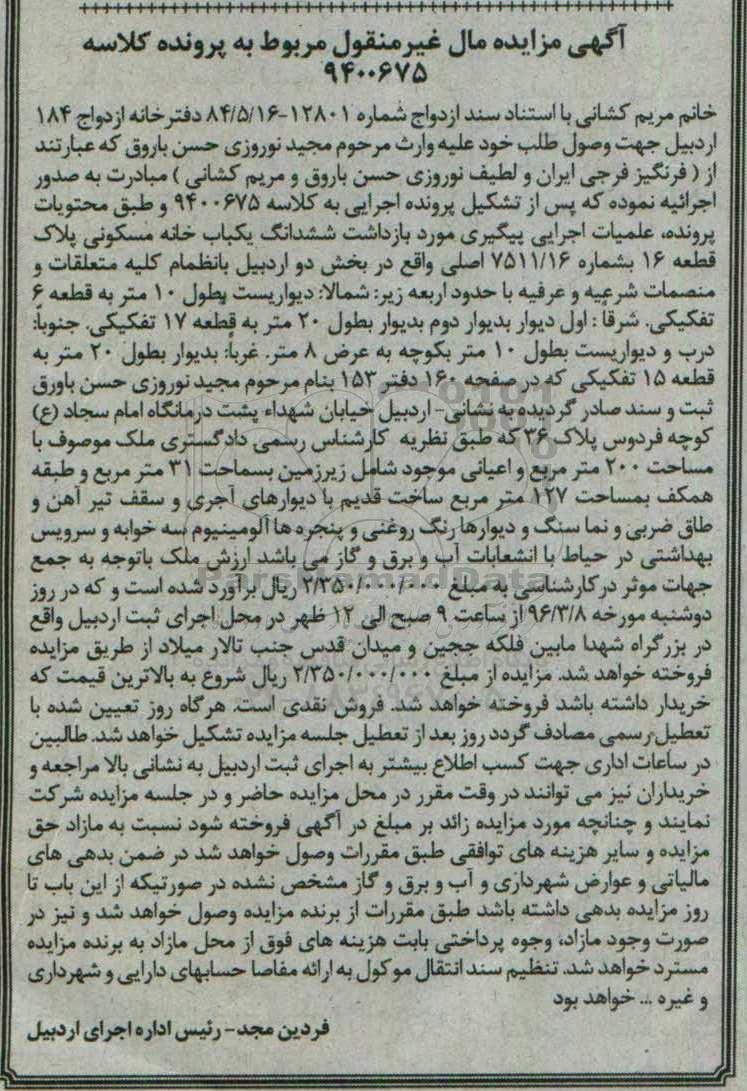 آگهی مزایده مال غیرمنقول مربوط به پرونده کلاسه
۹۴۰۰۶۷۵
خانم مریم کشانی با استناد سند ازدواج شماره ۱۲۸۰۱-۸۴/۵/۱۶ دفترخانه ازدواج ۱۸۴
اردبیل جهت وصول طلب خود علیه وارث مرحوم مجید نوروزی حسن باروق که عبارتند
از ( فرنگیز فرجی ایران و لطیف نوروزی حسن باروق و مریم کشانی ) مبادرت به صدور
اجرائیه نموده که پس از تشکیل پرونده اجرایی به کلاسه ۹۴۰۰۶۷۵ و طبق محتویات
پرونده، علمیات اجرایی پیگیری مورد بازداشت ششدانگ یکباب خانه مسکونی پلاک
قطعه ۱۶ بشماره ۷۵۱۱/۱۶ اصلی واقع در بخش دو اردبیل بانظمام کلیه متعلقات و
منصمات شرعیه و عرفیه با حدود اربعه زیر: شمالا: دیواریست بطول ۱۰ متر به قطعه ۶
تفکیکی. شرقاً : اول دیوار بدیوار دوم بدیوار بطول ۲۰ متر به قطعه ۱۷ تفکیکی. جنوباً:
درب و دیواریست بطول ۱۰ متر بکوچه به عرض ۸ متر. غرباً: بدیوار بطول ۲۰ متر به
قطعه ۱۵ تفکیکی که در صفحه ۱۶۰ دفتر ۱۵۳ بنام مرحوم مجید نوروزی حسن باورق
ثبت و سند صادر گردیده به نشانی- اردبیل خیابان شهداء پشت درمانگاه امام سجاد (ع)
کوچه فردوس پلاک ۳۶ که طبق نظریه کارشناس رسمی دادگستری ملک موصوف با
مساحت ۲۰۰ متر مربع و اعیانی موجود شامل زیرزمین بسماحت ۳۱ متر مربع و طبقه
همکف بمساحت ۱۲۷ متر مربع ساخت قدیم با دیوارهای آجری و سقف تیر آهن و
طاق ضربی و نما سنگ و دیوارها رنگ روغنی و پنجره ها آلومینیوم سه خوابه و سرویس
بهداشتی در حیاط با انشعابات آب و برق و گاز می باشد ارزش ملک باتوجه به جمع
جهات موثر در کارشناسی به مبلغ ۲/۳۵۰/۰۰۰/۰۰۰ ریال برآورد شده است و که در روز
دوشنبه مورخه ۹۶/۳/۸ از ساعت ۹ صبح الی ۱۲ ظهر در محل اجرای ثبت اردبیل واقع
در بزرگراه شهدا مابین فلکه ججین و میدان قدس جنب تالار میلاد از طریق مزایده
فروخته خواهد شد. مزایده از مبلغ ۲/۳۵۰/۰۰۰/۰۰۰ ریال شروع به بالاترین قیمت که
خریدار داشته باشد فروخته خواهد شد. فروش نقدی است. هرگاه روز تعیین شده با
تعطیل رسمی مصادف گردد روز بعد از تعطیل جلسه مزایده تشکیل خواهد شد. طالبین
در ساعات اداری جهت کسب اطلاع بیشتر به اجرای ثبت اردبیل به نشانی بالا مراجعه و
خریداران نیز می توانند در وقت مقرر در محل مزایده حاضر و در جلسه مزایده شرکت
نمایند و چنانچه مورد مزایده زائد بر مبلغ در آگهی فروخته شود نسبت به مازاد حق
مزایده و سایر هزینه های توافقی طبق مقررات وصول خواهد شد در ضمن بدهی های
مالیاتی و عوارض شهرداری و آب و برق و گاز مشخص نشده در صورتیکه از این باب تا
روز مزایده بدهی داشته باشد طبق مقررات از برنده مزایده وصول خواهد شد و نیز در
صورت وجود مازاد، وجوه پرداختی بابت هزینه های فوق از محل مازاد به برنده مزایده
مسترد خواهد شد. تنظیم سند انتقال موکول به ارائه مفاصا حسابهای دارایی و شهرداری
و غیره ... خواهد بود
فردین مجد- رئیس اداره اجرای اردبیل
ParsNamadData